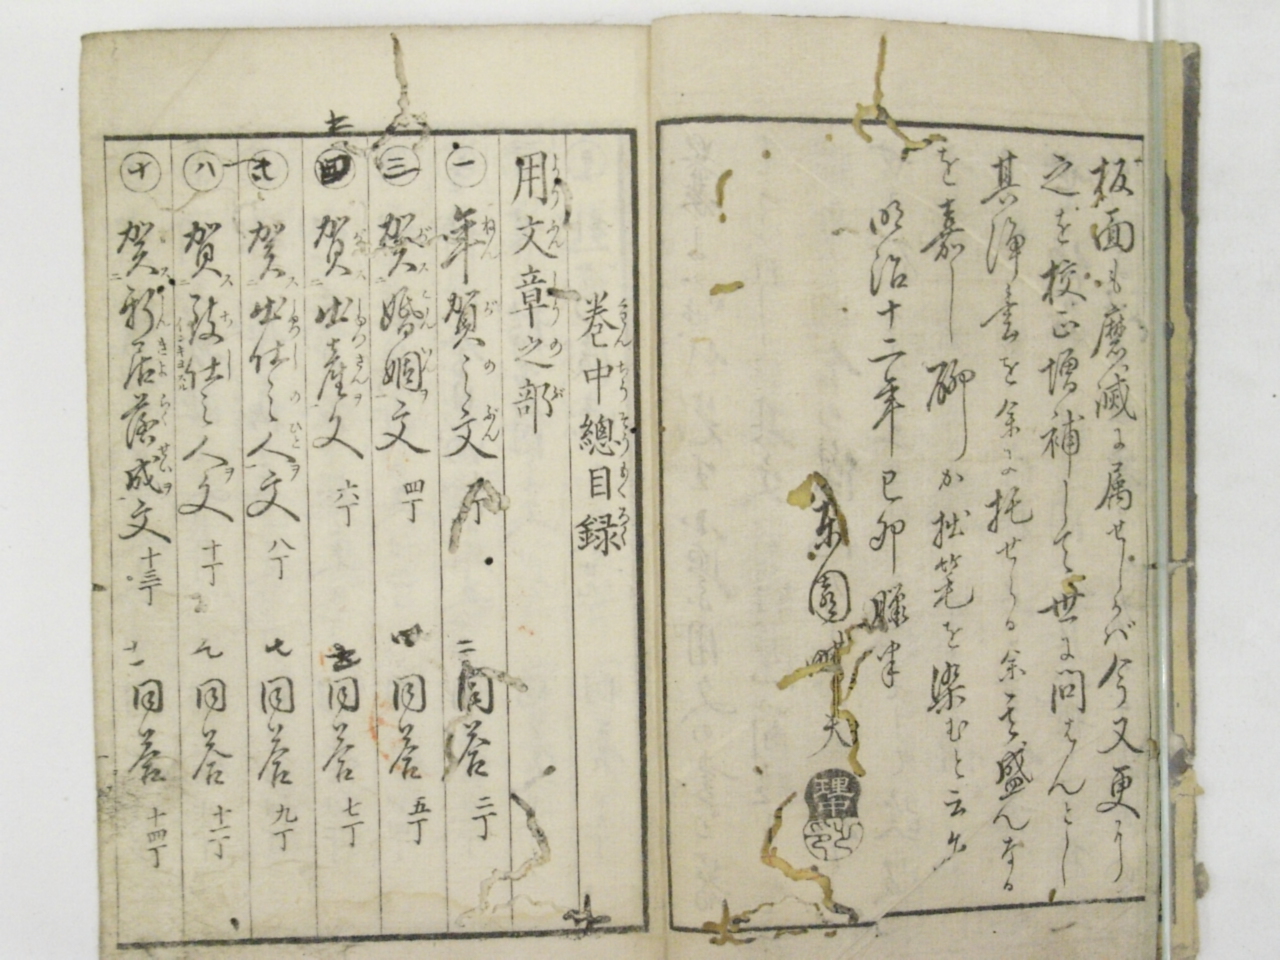 板面も磨滅に属せしが今又更に
之を校正増補して世に問はんとし
其浄書を余に托せらる余其盛んなる
を嘉し聊か拙筆を染むと云爾
明治十二年己卯臘半
東園 夫
巻中總目録
用文章之部
一 年賀之文 二 同答 二丁
三 賀婚姻文 四丁 四 同答 五丁
賀出産文 六丁 同答 七丁
賀出仕之人文 八丁 七 同答 九丁
八 賀致仕之人文 十丁 九 同答 十一丁
十 賀新居落成文 十三丁 十一 同答 十四丁